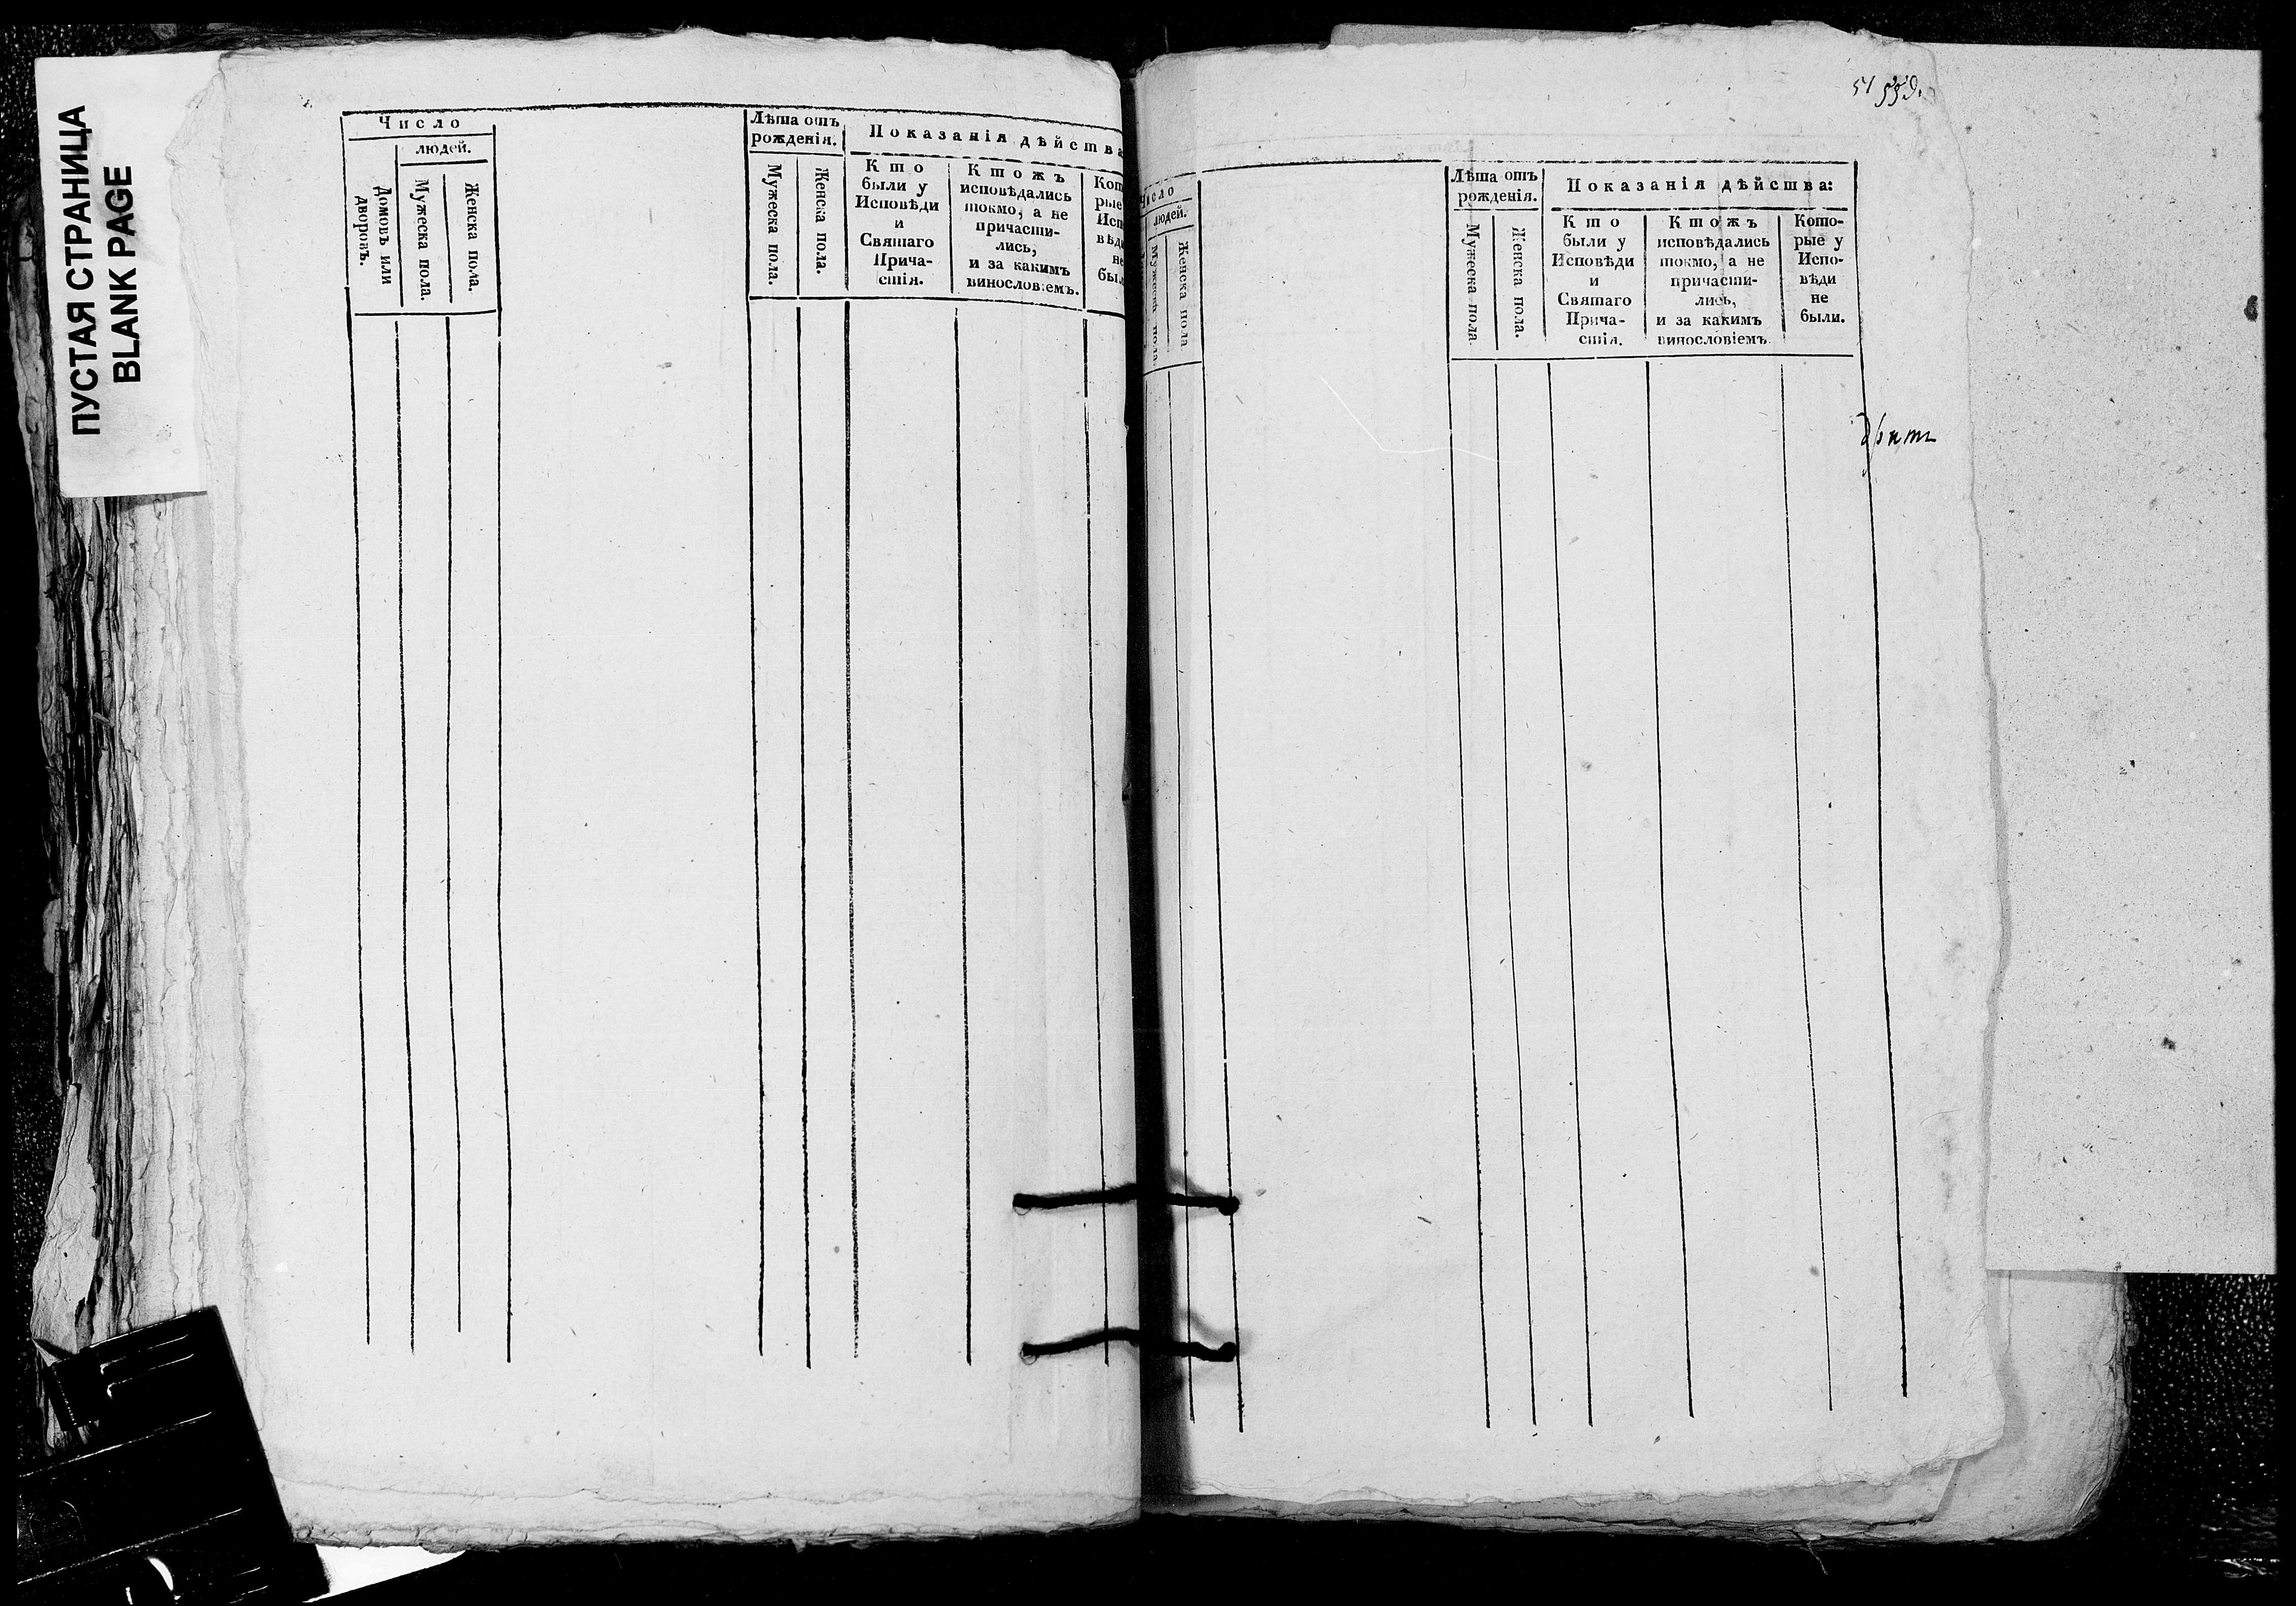 ПУСТАЯ СТРАНИЦА
BLANK PAGE
Число
людей.
Домовъ или
дворовъ.
Мужеска пола.
Женска пола.
Лѣта отъ
рожденія.
Мужеска пола.
Женска пола.
Показанія дѣйства
Кто
были у
Исповѣди
и
Святаго
Прича-
стія.
Ктожъ
исповѣдались
токмо, а не
причасти-
лись,
и за какимъ
винословіемъ.
Кот
рые
Исп
вѣд
не
был
54
Число
людей.
Мужеска пола
Женска пола
Лѣта отъ
рожденія.
Мужеска пола.
Женска пола.
Показанія дѣйства:
Кто
были у
Исповѣди
и
Святаго
Прича-
стія.
Ктожъ
исповѣдались
токмо, а не
причасти-
лись,
и за какимъ
винословіемъ
Кото-
рые у
Испо-
вѣди
не
были.